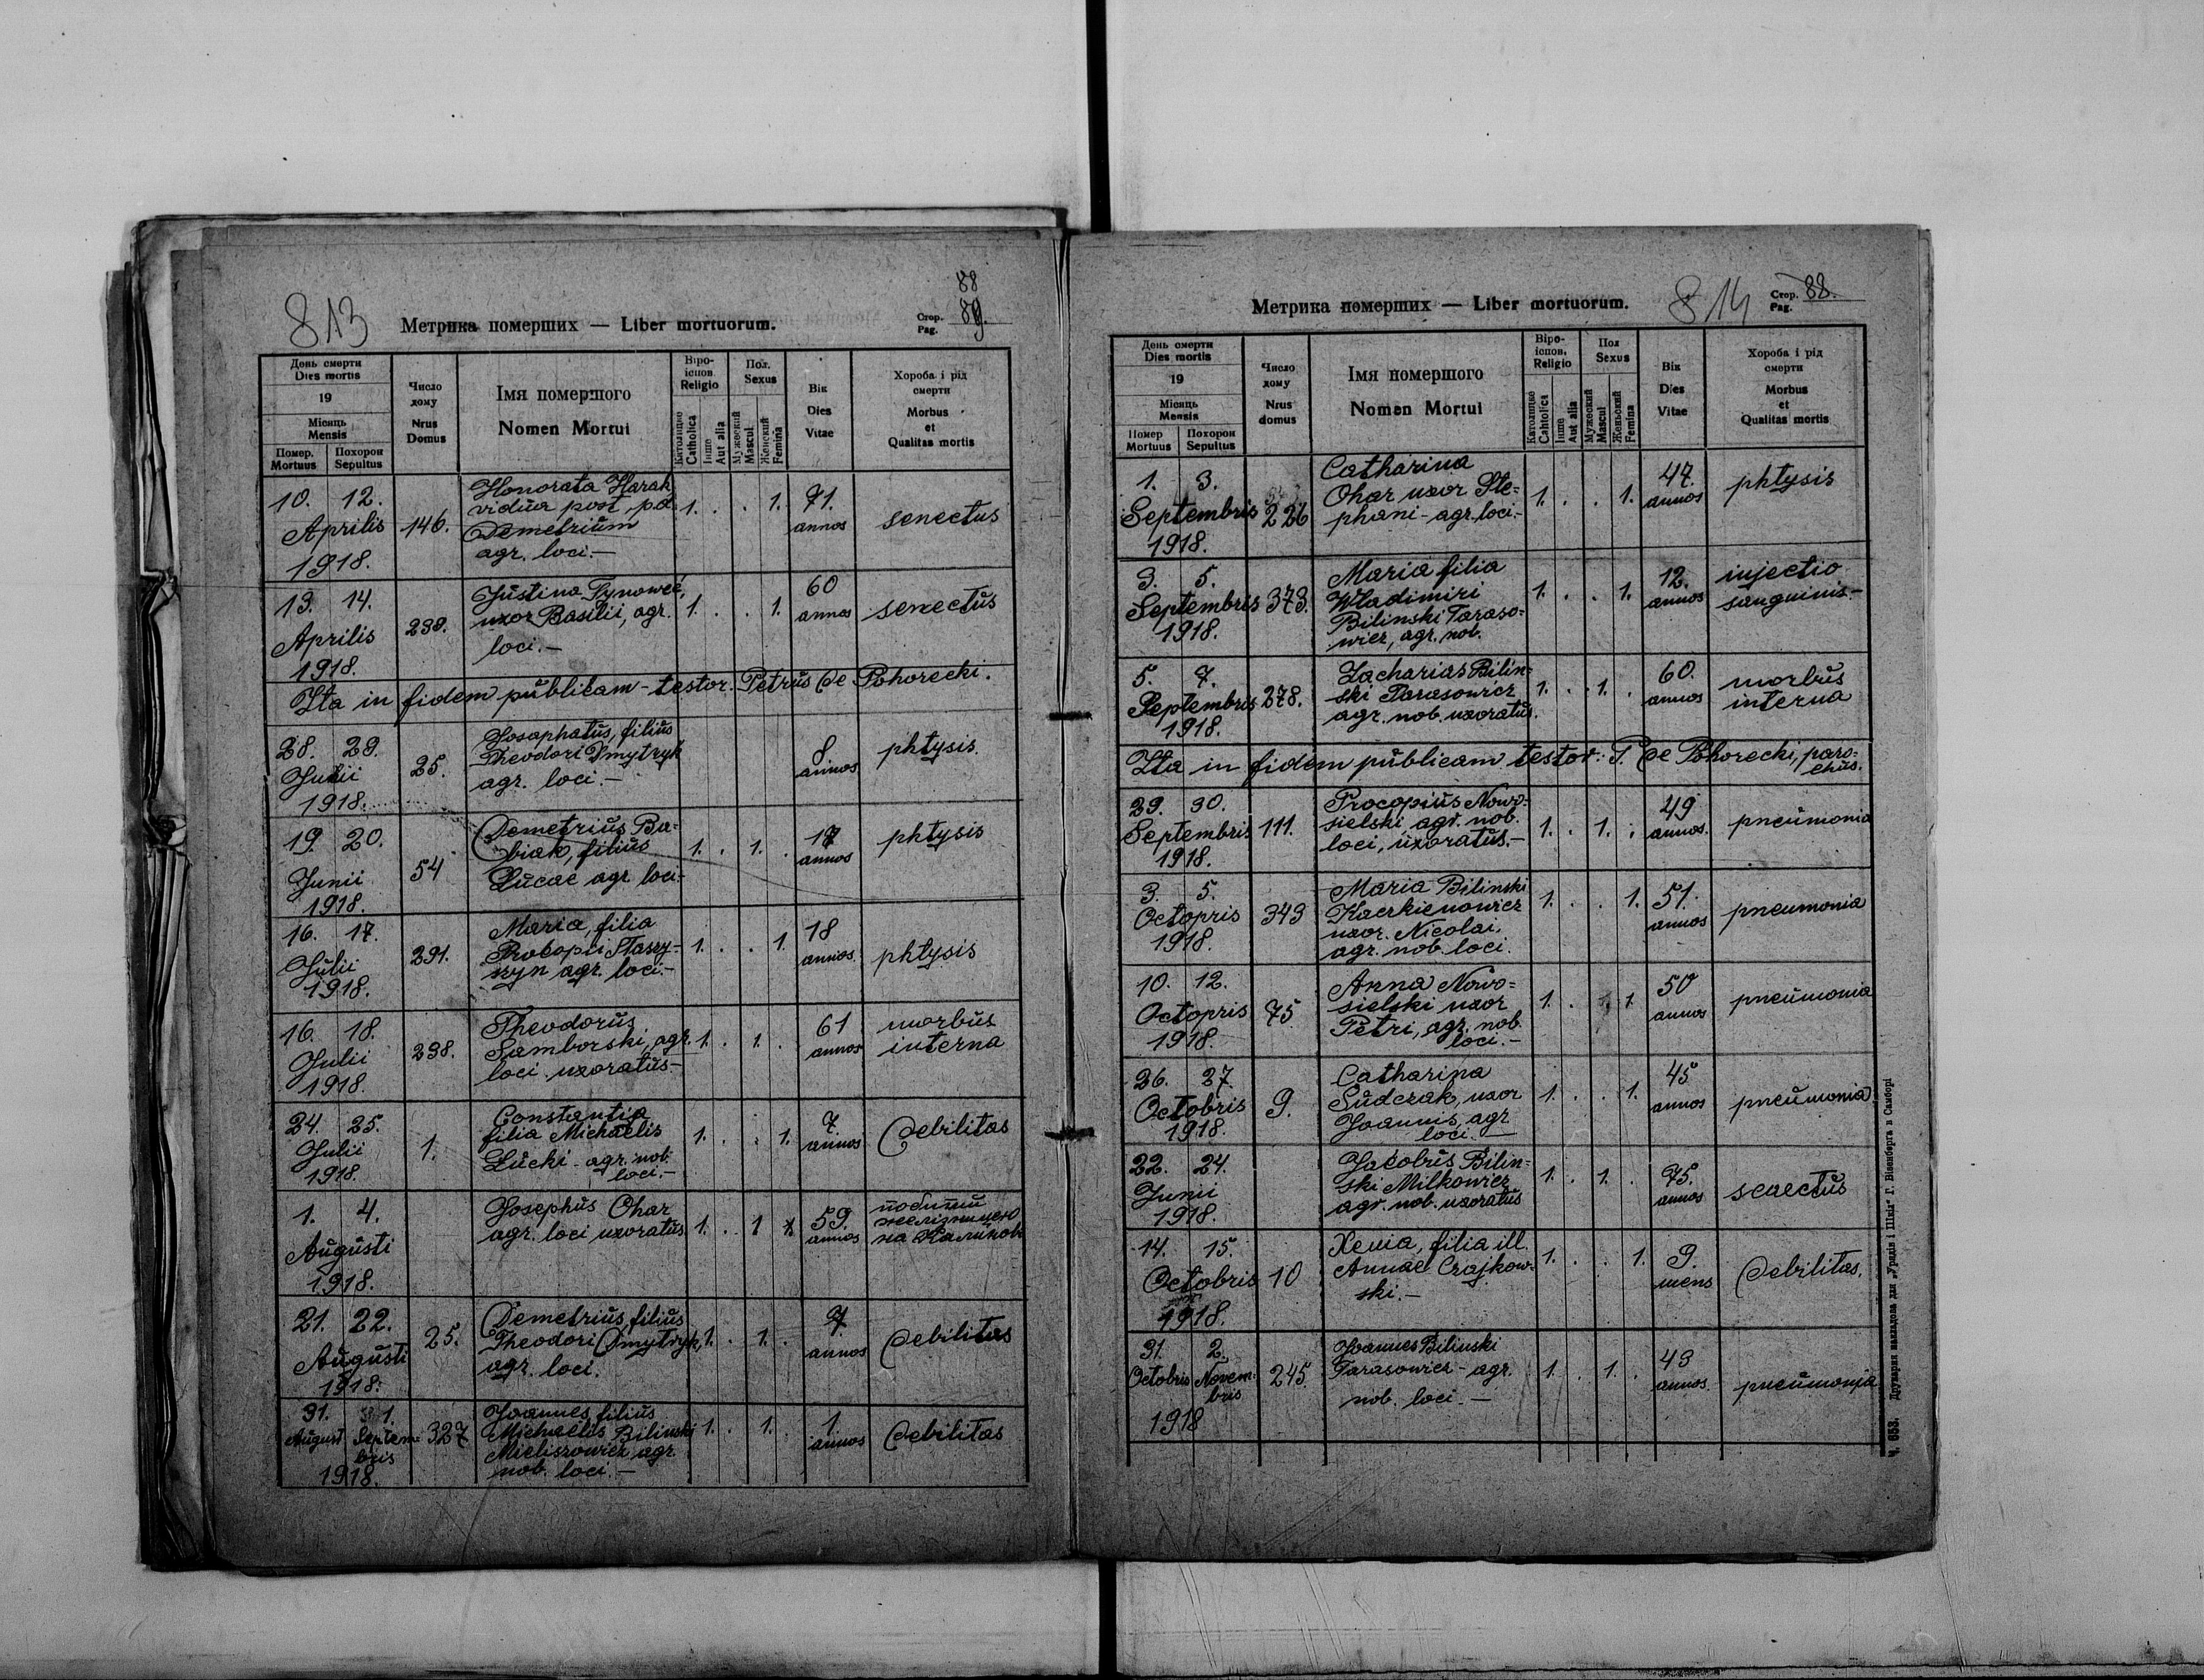 813
Метрика померших — Liber mortuorum.
88
Стор.
Pag.
89.
День смерти
Dies mortis
19
Місяць
Mensis
Помер.
Mortuus
Похорон
Sepultus
Число
дому
Nrus
Domus
Імя помершого
Nomen Mortui
Віро-
іспов
Religio
Католицке
Catholica
Інше
Aut alia
Пол.
Sexus
Мужеский
Mascul.
Женский
Femina
Вік
Dies
Vitae
Хороба і рід
смерти
Morbus
et
Qualitas mortis
10. 12.
Aprilis
1918.
146.
Honorata Harah
vidua post p.d.
Demetrium
agr. loci.—
1. . . 1.
71.
annos
senectus
13. 14.
Aprilis
1918.
238.
Justina Tynowec,
uxor Basilii, agr.
loci.—
1. . . 1.
60
annos
senectus
Ita in fidem publicam - testor. Petrus de Pohorecki.
28. 29.
Julii
1918.
25.
Josaphatus, filius
Theodori Dmytryk
agr. loci.—
8
annos
phtysis.
19. 20.
Junii
1918.
54
Demetrius Ba=
biak, filius
Lucae agr. loci-
1. . 1. .
17
annos
phtysis
16. 17.
Julii
1918.
291.
Maria, filia
Procopii Staszy-
szyn agr. loci.—
1. . . 1.
18
annos.
phtysis
16. 18.
Julii
1918.
238.
Theodorus
Samborski, agr.
loci uxoratus.—
1. . 1. .
61
annos
morbus
interna
24. 25.
Julii
1918.
1.
Constantia
filia Michaelis
Lucki - agr. nob.
loci.—
1. . . 1.
7.
annos
debilitas
1. 4.
Augusti
1918.
Josephus Ohar
agr. loci uxoratus
1. . 1
59.
annos
побитий
желізницею
на
21. 22.
Augusti
1918.
25.
Demetrius, filius
Theodori Dmytryk,
agr. loci.
1. . 1. .
7.
annos
debilitas
31. 1.
August Septem=
bris
1918.
327
Joannes, filius
Michaelis Bilinski
Mieliszowicz agr
nob. loci.—
1. . 1.
1.
annos
debilitas
Метрика померших — Liber mortuorum.
814
Стор.
Pag.
88.
День смерти
Dies mortis
19
Місяць
Mensis
Помер
Mortuus
Похорон
Sepultus
Число
дому
Nrus
domus
Імя помершого
Nomen Mortui
Віро-
іспов.
Religio
Католицке
Cahtolica
Інше
Aut alia
Пол
Sexus
Мужеский
Mascul
Женьский
Femina
Вік
Dies
Vitae
Хороба і рід
смерти
Morbus
et
Qualitas mortis
1. 3.
Septembris
1918.
226
Catharina
Ohar uxor Ste=
phani - agr. loci.-
1. . . 1.
47.
annos
phtysis
3. 5.
Septembris
1918.
373.
Maria filia
Wladimiri
Bilinski Taraso=
wicz, agr. nob.
1. . . 1.
12.
annos
injectio
sanguinis.-
5. 7.
Septembris
1918.
278.
Zacharias Bilin=
ski Tarasowicz
agr. nob. uxoratus.
1. . 1. .
60.
annos
morbus
interna
Ita in fidem publicam testor: P. de Pohorecki, paro=
chus.
29. 30.
Septembris
1918.
111.
Procopius Nowo=
sielski, agr. nob.
loci, uxoratus.—
1. . 1. .
49
annos.
pneumonia
3. 5.
Octopris
1918.
343
Maria Bilinski
Kaczkienowicz
uxor. Nicolai,
agr. nob. loci.
1. . . 1.
51.
annos
pneumonia
10. 12.
Octopris
1918.
75
Anna Nowo=
sielski uxor
Petri, agr. nob.
loci.—
1. . 1
50
annos
pneumonia
26. 27.
Octobris
1918.
9.
Catharina
Sudczak, uxor
Joannis, agr
loci.—
1. . . 1.
45
annos
pneumonia
22. 24.
Junii
1918.
Jacobus Bilin=
ski Milkowicz
agr. nob. uxoratus
1. . 1. .
75.
annos
senectus
14. 15.
Octobris
1918.
10
Xenia, filia ill.
Annae Czajkow-
ski.—
1. . . 1.
9.
mens
debilitas.
31. 2.
Octobris Novem-
bris
1918
245.
Joannes Bilinski
Tarasowicz - agr.
nob. loci.—
1. . 1. .
43
annos.
pneumonia
Ч. 653. Друкарня накладова для „Урядів і Шкіл“ Г. Візенберга в Самборі